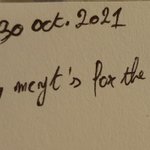 30 oct. 2021
meryt's for the